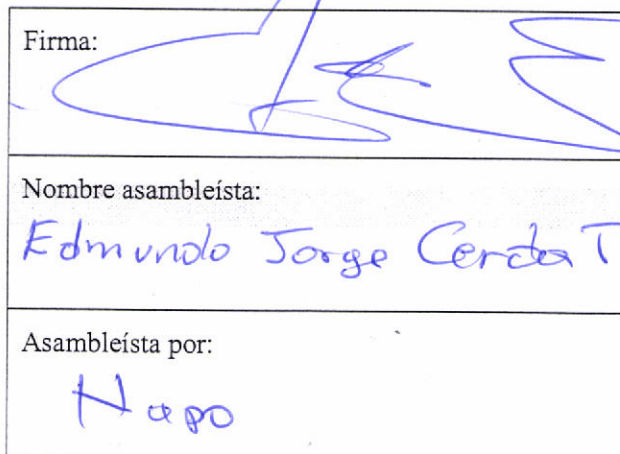 Firma:
Nombre asambleísta:
Edmundo Jorge Cerda T
Asambleísta por:
Napo